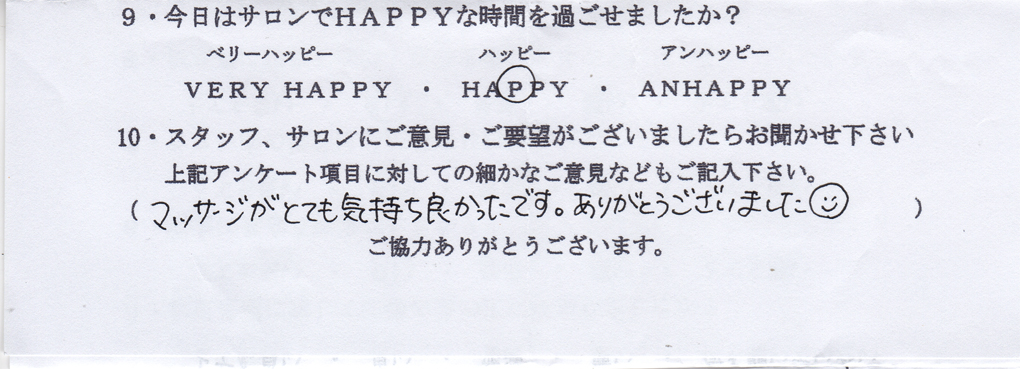 9・今日はサロンでHAPPYな時間を過ごせましたか？
ベリーハッピー　ハッピー　アンハッピー
VERY HAPPY ・ HAPPY ・ ANHAPPY
10・スタッフ、サロンにご意見・ご要望がございましたらお聞かせ下さい
上記アンケート項目に対しての細かなご意見などもご記入下さい。
（マッサージがとても気持ち良かったです。ありがとうございました☺）
ご協力ありがとうございます。